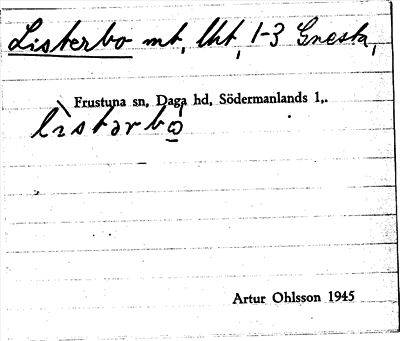 Listerbo mt, lht, 1-3 Gnesta,
Frustuna sn, Daga hd, Södermanlands l,.
lìstərbω̲
Artur Ohlsson 1945